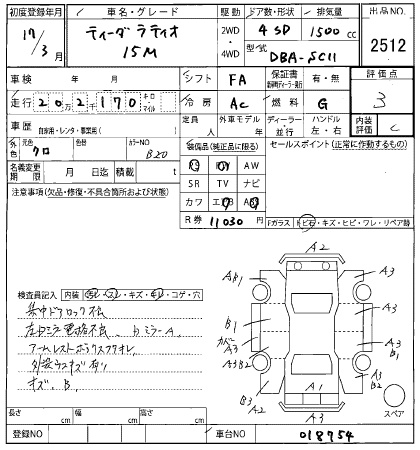 初度登録年月 車名・グレード 駆動 ドア数・形状 排気量 出品NO.
17/3月 ティーダ ラティオ 15M 2WD 4WD 4 SD 1500 cc 2512
型式 DBA-SC11
車検 年 月 シフト FA 保証書 有・無 評価点
走行 20万2千170 キロ・マイル 冷房 AC 燃料 G 3
車歴 自家用・レンタ・事業用( ) 定員 人 外車モデル 年 ディーラー・並行 ハンドル 左・右 内装評価 C
外色 元色 クロ 色替 カラーNO B20
装備品(純正品に限る) セールスポイント(正常に作動するもの)
名義変更期限 月 日迄 積載 t
PS PW AW
SR TV ナビ
注意事項(欠品・修復・不具合箇所および状態)
カワ
R券 11030円
Fガラス トビ石・キズ・ヒビ・ワレ・リペア跡
検査員記入 内装 ヨゴレ・スレ・キズ・キレ・コゲ・穴
集中ドアロック不良
左ドアミラー電格不良、
ミラーA
アームレストボックスフタオレ
外装ウスキズ有り
キズ、B
A2
A3
AB1
A3
B1
カバー
A3
A3
B1
A3B2
A3
B2
B3
A2
A1
A3
スペア
長さ cm 幅 cm 高さ cm
登録NO 車台NO 018754